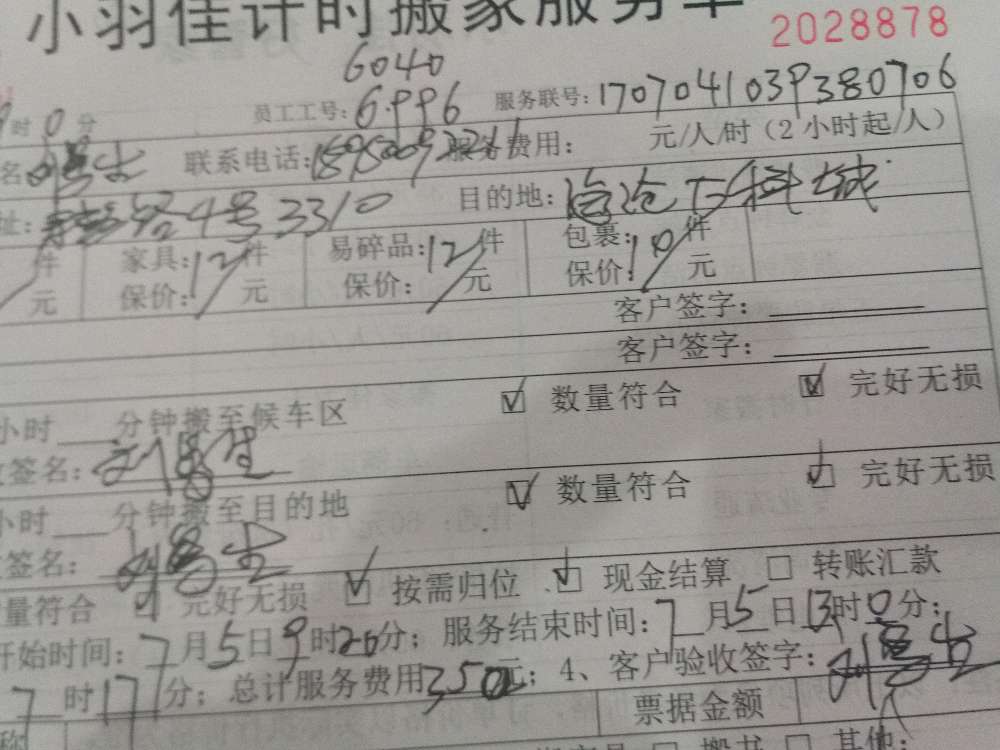 小羽佳计时搬家服务单
2028878
6040
时0分 员工工号:6.996 服务联号:1707041039380706
名 联系电话: 服务费用: 元/人/时(2小时起/人)
址: 路4号3310 目的地:
件 家具:12件 易碎品:12件 包裹:10件
元 保价: 元 保价: 元 保价: 元
客户签字:
客户签字:
小时 分钟搬至候车区 ☑ 数量符合 ☑ 完好无损
签名:
小时 分钟搬至目的地 ☑ 数量符合 ☑ 完好无损
签名:
量符合 ☑ 完好无损 ☑ 按需归位 ☑ 现金结算 □ 转账汇款
开始时间:7月5日9时20分;服务结束时间:7月5日13时0分;
7时17分;总计服务费用350元;4、客户验收签字:
称 票据金额
□ 搬书 □ 其他: